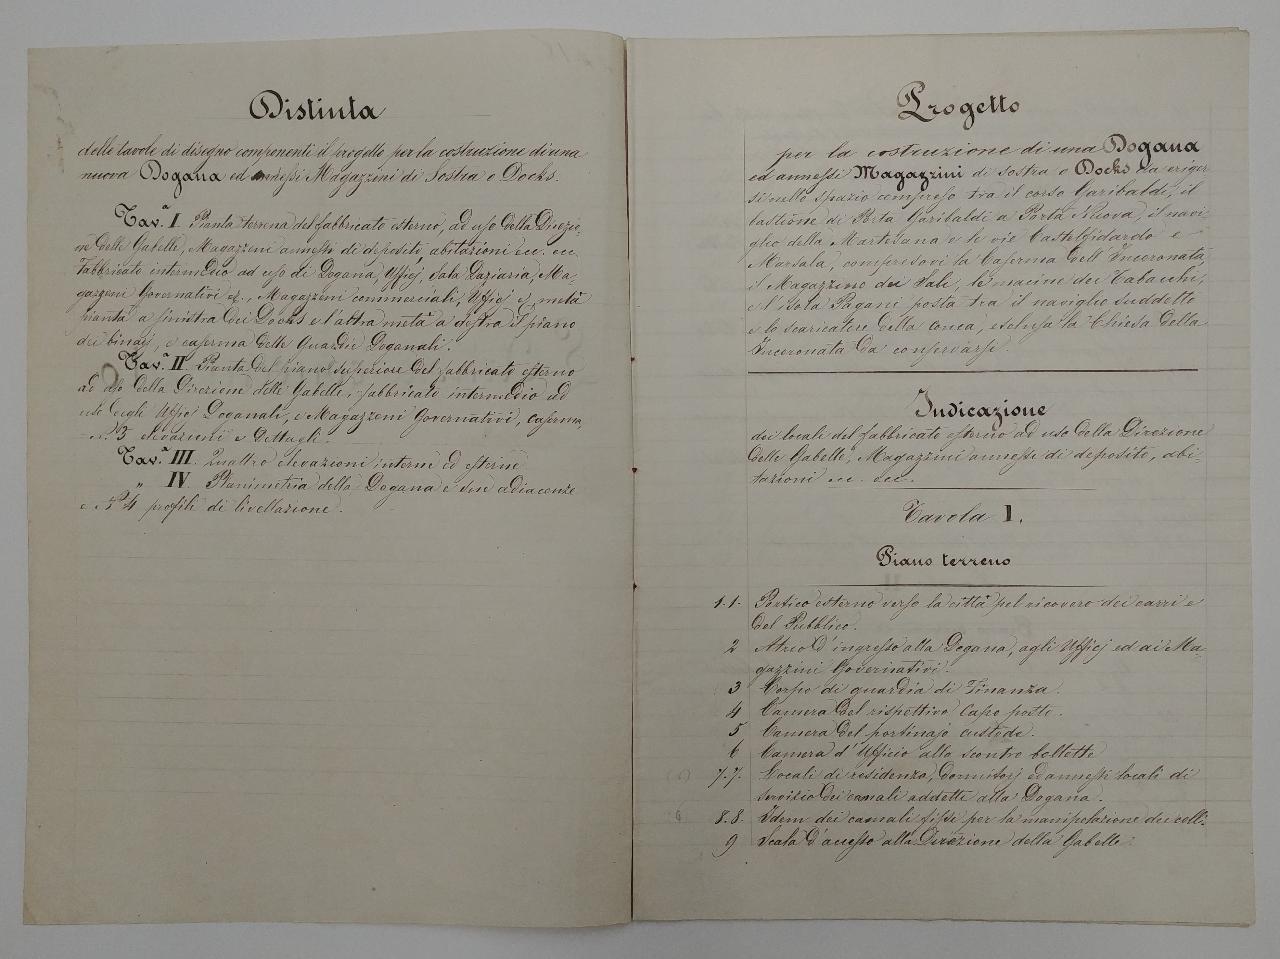 Distinta
delle tavole di disegno componenti il progetto per la costruzione di una
nuova Dogana ed annessi Magazzini di Sostra o Docks.
Tav.ª I. Pianta terrena del fabbricato esterno, ad uso della Direzio-
ne delle Gabelle, Magazzeni annessi di deposito abitazioni ecc. ecc.
Fabbricato intermedio ad uso di Dogana, Ufficj, Sala Daziaria, Ma-
gazzeni Governativi e, Magazzeni commerciali, Ufficj e, metà
pianta a sinistra dei Docks e l'altra metà a destra il piano
dei binarj, e caserma delle Guardie Doganali.
Tav.ª II. Pianta del piano superiore del fabbricato esterno
ad uso della Direzione delle Gabelle, fabbricato intermedio ad
uso degli Ufficj Doganali, e Magazzeni Governativi, caserma,
N.º 3 elevazioni e dettagli.
Tav.ª III. Quattro elevazioni interne ed esterne
„ IV. Planimetria della Dogana e sue adiacenze
e N.º 4 profili di livellazione.
Progetto
per la costruzione di una Dogana
ed annessi Magazzini di sostra o Docks da eriger-
si nello spazio compreso tra il corso Garibaldi, il
bastione di Porta Garibaldi a Porta Nuova, il navi-
glio della Martesana e le vie Castelfidardo e
Marsala, compresovi la Caserma dell'Incoronata
il Magazzino dei Sali, le macine dei Tabacchi,
e l'isola Pagani posta tra il naviglio suddetto
e lo scaricatore della conca, esclusa la Chiesa della
Incoronata da conservarsi.
Indicazione
dei locali del fabbricato esterno ad uso della Direzione
delle Gabelle, Magazzini annessi di deposito, abi-
tazioni ecc. ecc.
Tavola I.
Piano terreno
1.1. Portico esterno verso la città pel ricovero dei carri e
del Pubblico.
2 Atrio d'ingresso alla Dogana, agli Ufficj ed ai Ma-
gazzini Governativi.
3 Corpo di guardia di Finanza.
4 Camera del rispettivo Capo posto.
5 Camera del portinajo custode.
6 Camera d'Ufficio allo scontro bollette
7.7. Locali di residenza, dormitorj ed annessi locali di
servizio dei camali addetti alla Dogana.
8.8. Idem dei camali fissi per la manipolazione dei colli.
9 Scala d'accesso alla Direzione della Gabelle.